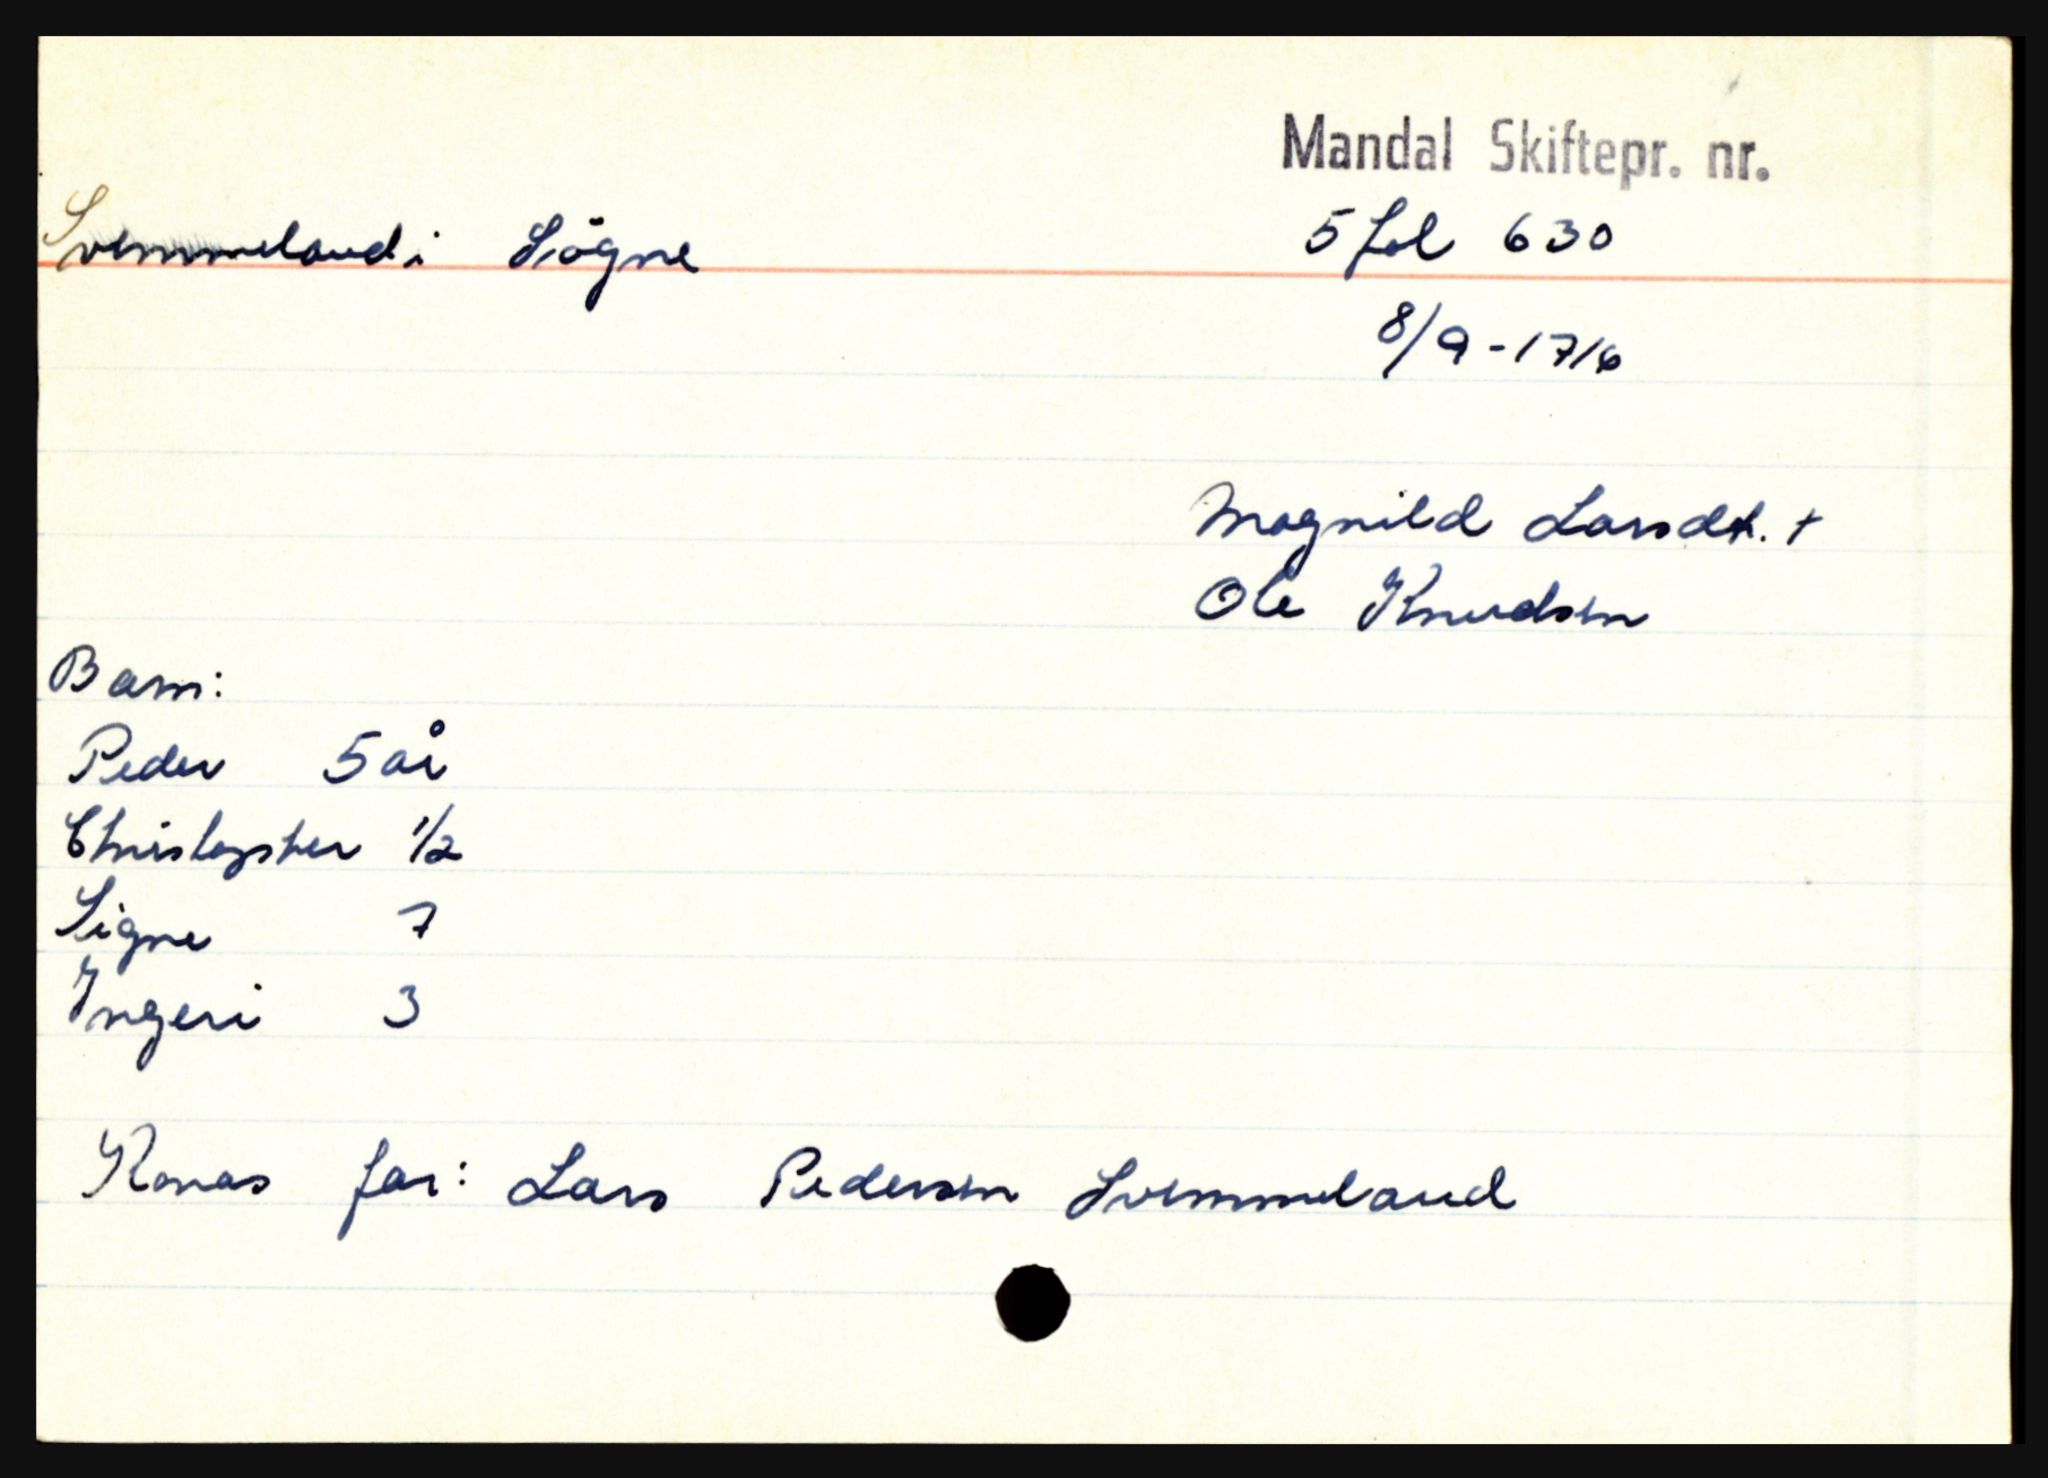 Mandal Skiftepr. nr.
Svemmeland i Sögne
5 fol 630
8/9-1716
Magnild Larsdt. +
Ole Knudsen
Barn:
Peder 5 år
Christopher 1/2
Signe 7
Ingeri 3
Konas far: Lars Pedersen Svemmeland